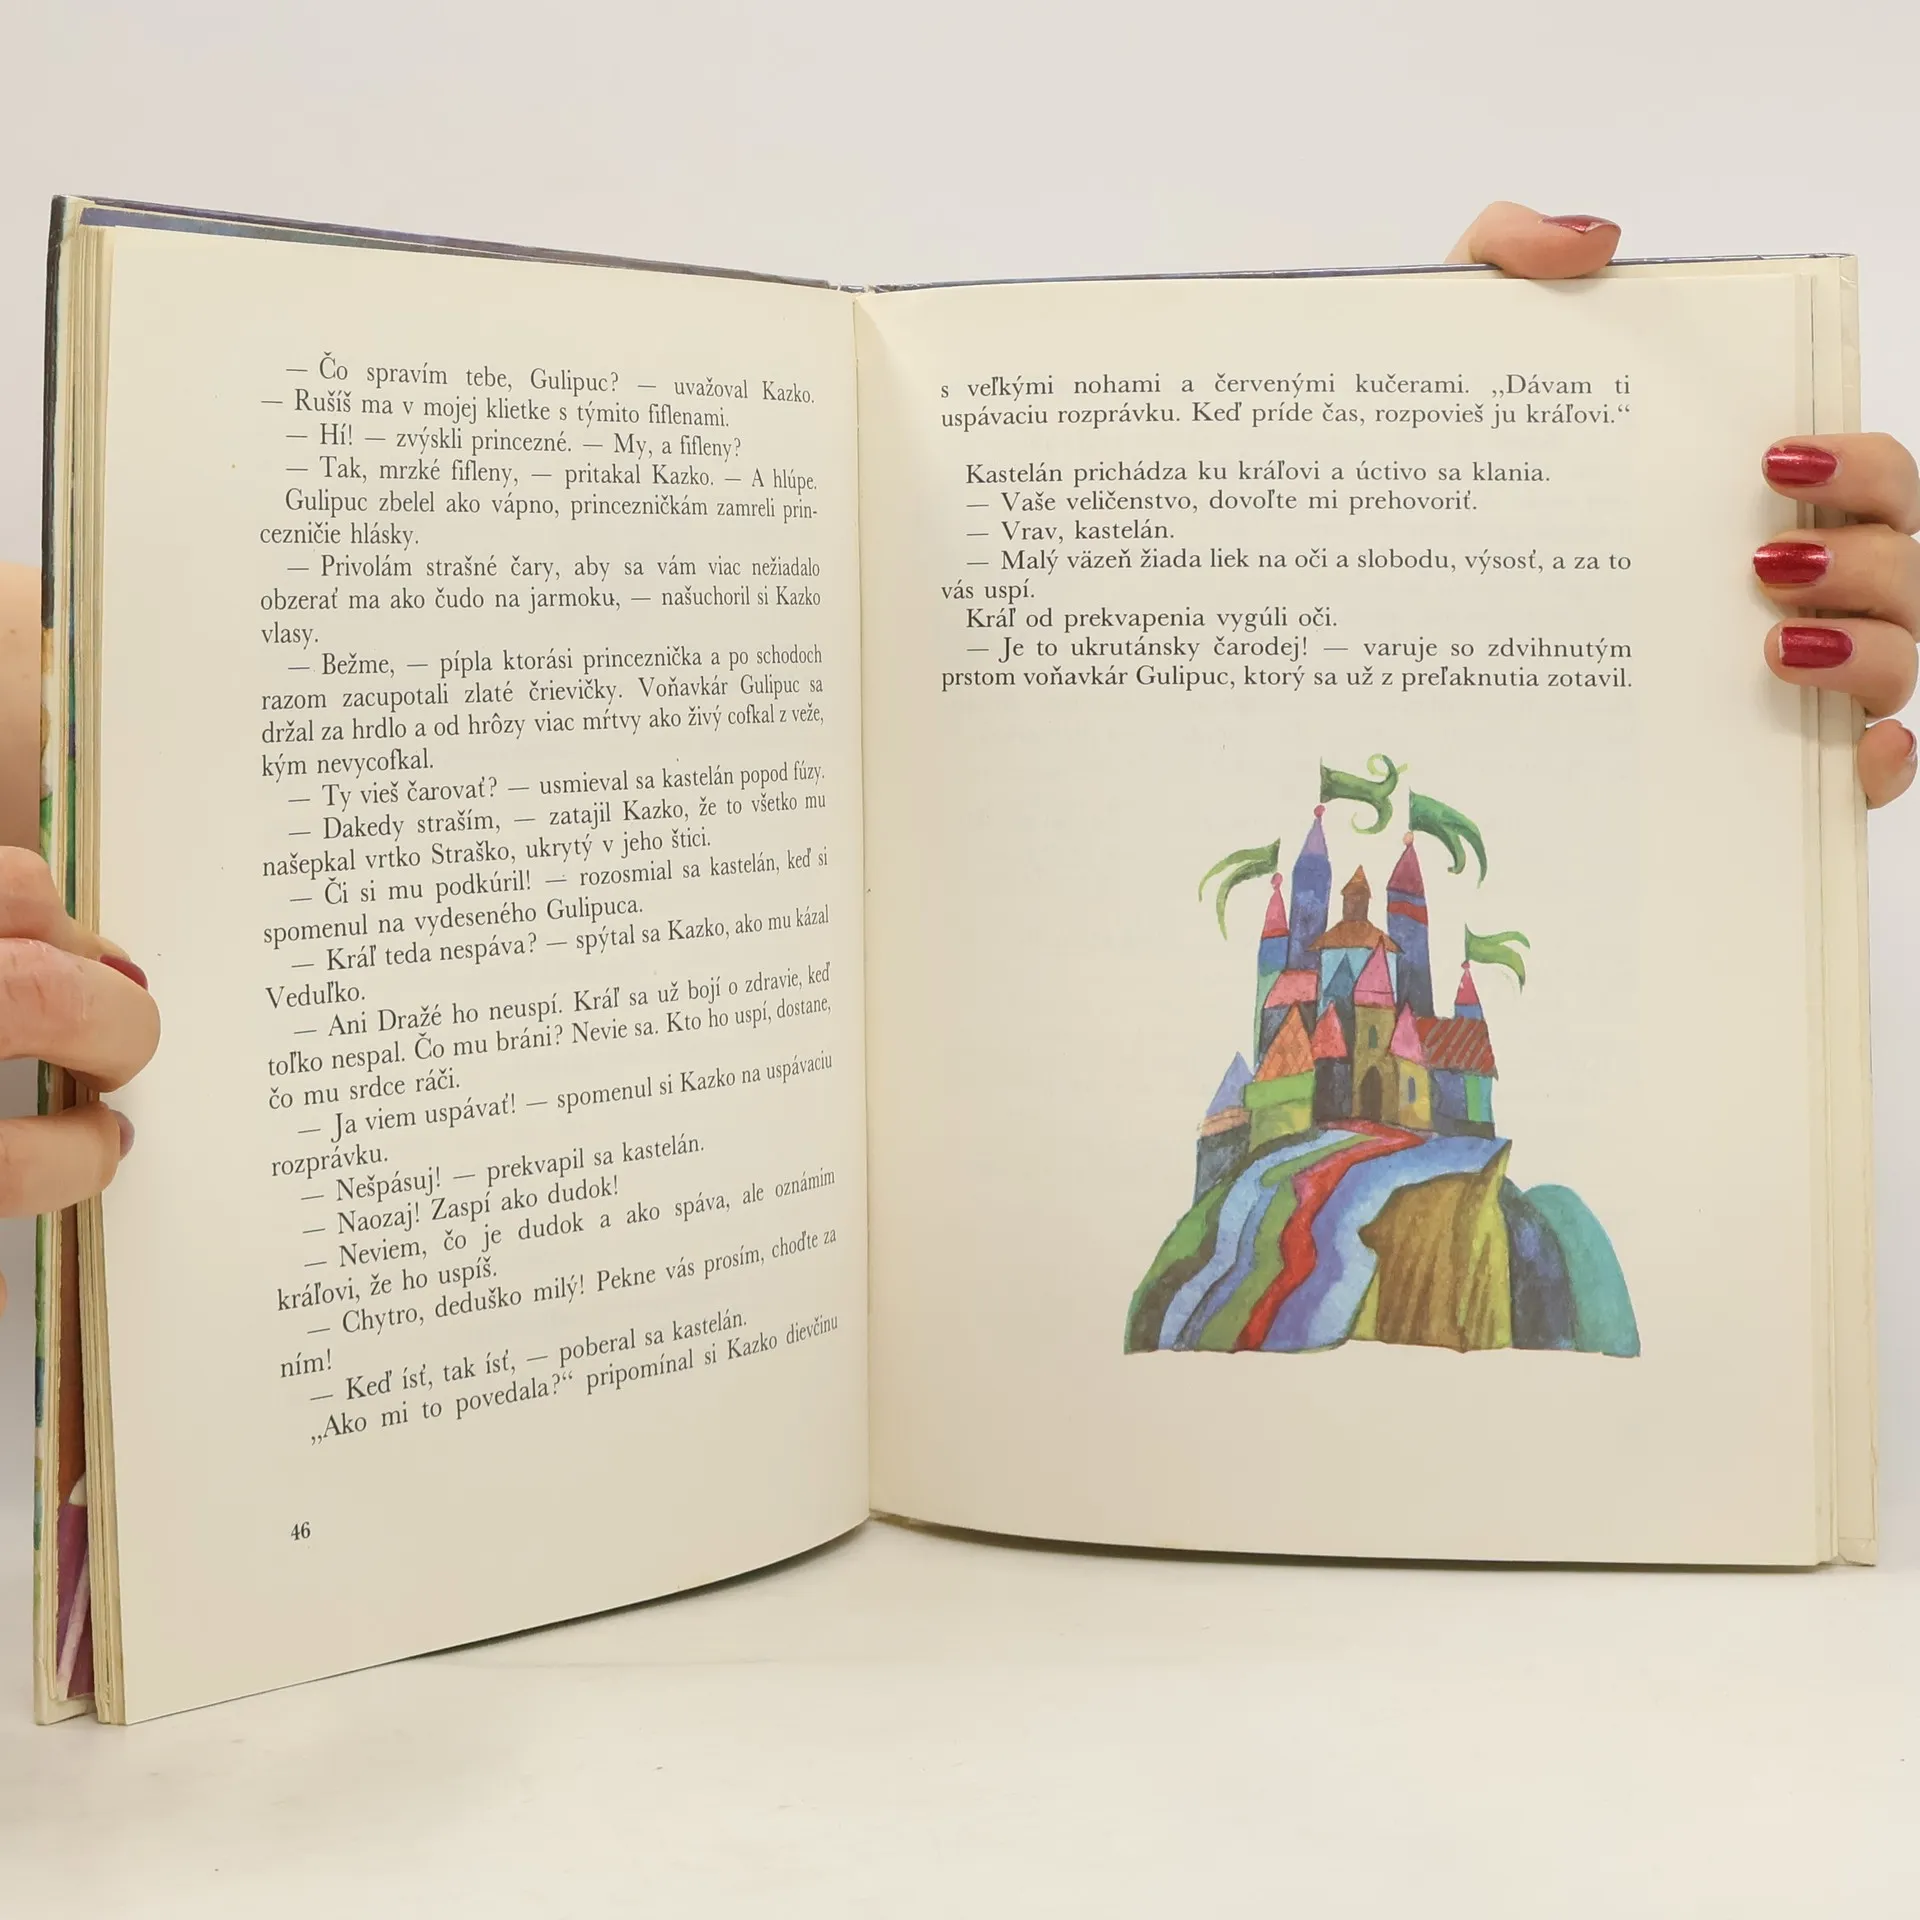 — Čo spravím tebe, Gulipuc? — uvažoval Kazko.
— Rušíš ma v mojej klietke s týmito fiflenami.
— Hí! — zvýskli princezné. — My, a fifleny?
— Tak, mrzké fifleny, — pritakal Kazko. — A hlúpe.
Gulipuc zbelel ako vápno, princezničkám zamreli prin-
cezničie hlásky.
— Privolám strašné čary, aby sa vám viac nežiadalo
obzerať ma ako čudo na jarmoku, — našuchoril si Kazko
vlasy.
— Bežme, — pípla ktorási princeznička a po schodoch
razom zacupotali zlaté črievičky. Voňavkár Gulipuc sa
držal za hrdlo a od hrôzy viac mŕtvy ako živý cofkal z veže,
kým nevycofkal.
— Ty vieš čarovať? — usmieval sa kastelán popod fúzy.
— Dakedy straším, — zatajil Kazko, že to všetko mu
našepkal vrtko Straško, ukrytý v jeho štici.
— Či si mu podkúril! — rozosmial sa kastelán, keď si
spomenul na vydeseného Gulipuca.
— Kráľ teda nespáva? — spýtal sa Kazko, ako mu kázal
Veduľko.
— Ani Dražé ho neuspí. Kráľ sa už bojí o zdravie, keď
toľko nespal. Čo mu bráni? Nevie sa. Kto ho uspí, dostane,
čo mu srdce ráči.
— Ja viem uspávať! — spomenul si Kazko na uspávaciu
rozprávku.
— Nešpásuj! — prekvapil sa kastelán.
— Naozaj! Zaspí ako dudok!
— Neviem, čo je dudok a ako spáva, ale oznámim
kráľovi, že ho uspíš.
— Chytro, deduško milý! Pekne vás prosím, choďte za
ním!
— Keď ísť, tak ísť, — poberal sa kastelán.
„Ako mi to povedala?“ pripomínal si Kazko dievčinu
46
s veľkými nohami a červenými kučerami. „Dávam ti
uspávaciu rozprávku. Keď príde čas, rozpovieš ju kráľovi.“
Kastelán prichádza ku kráľovi a úctivo sa klania.
— Vaše veličenstvo, dovoľte mi prehovoriť.
— Vrav, kastelán.
— Malý väzeň žiada liek na oči a slobodu, výsosť, a za to
vás uspí.
Kráľ od prekvapenia vygúli oči.
— Je to ukrutánsky čarodej! — varuje so zdvihnutým
prstom voňavkár Gulipuc, ktorý sa už z preľaknutia zotavil.